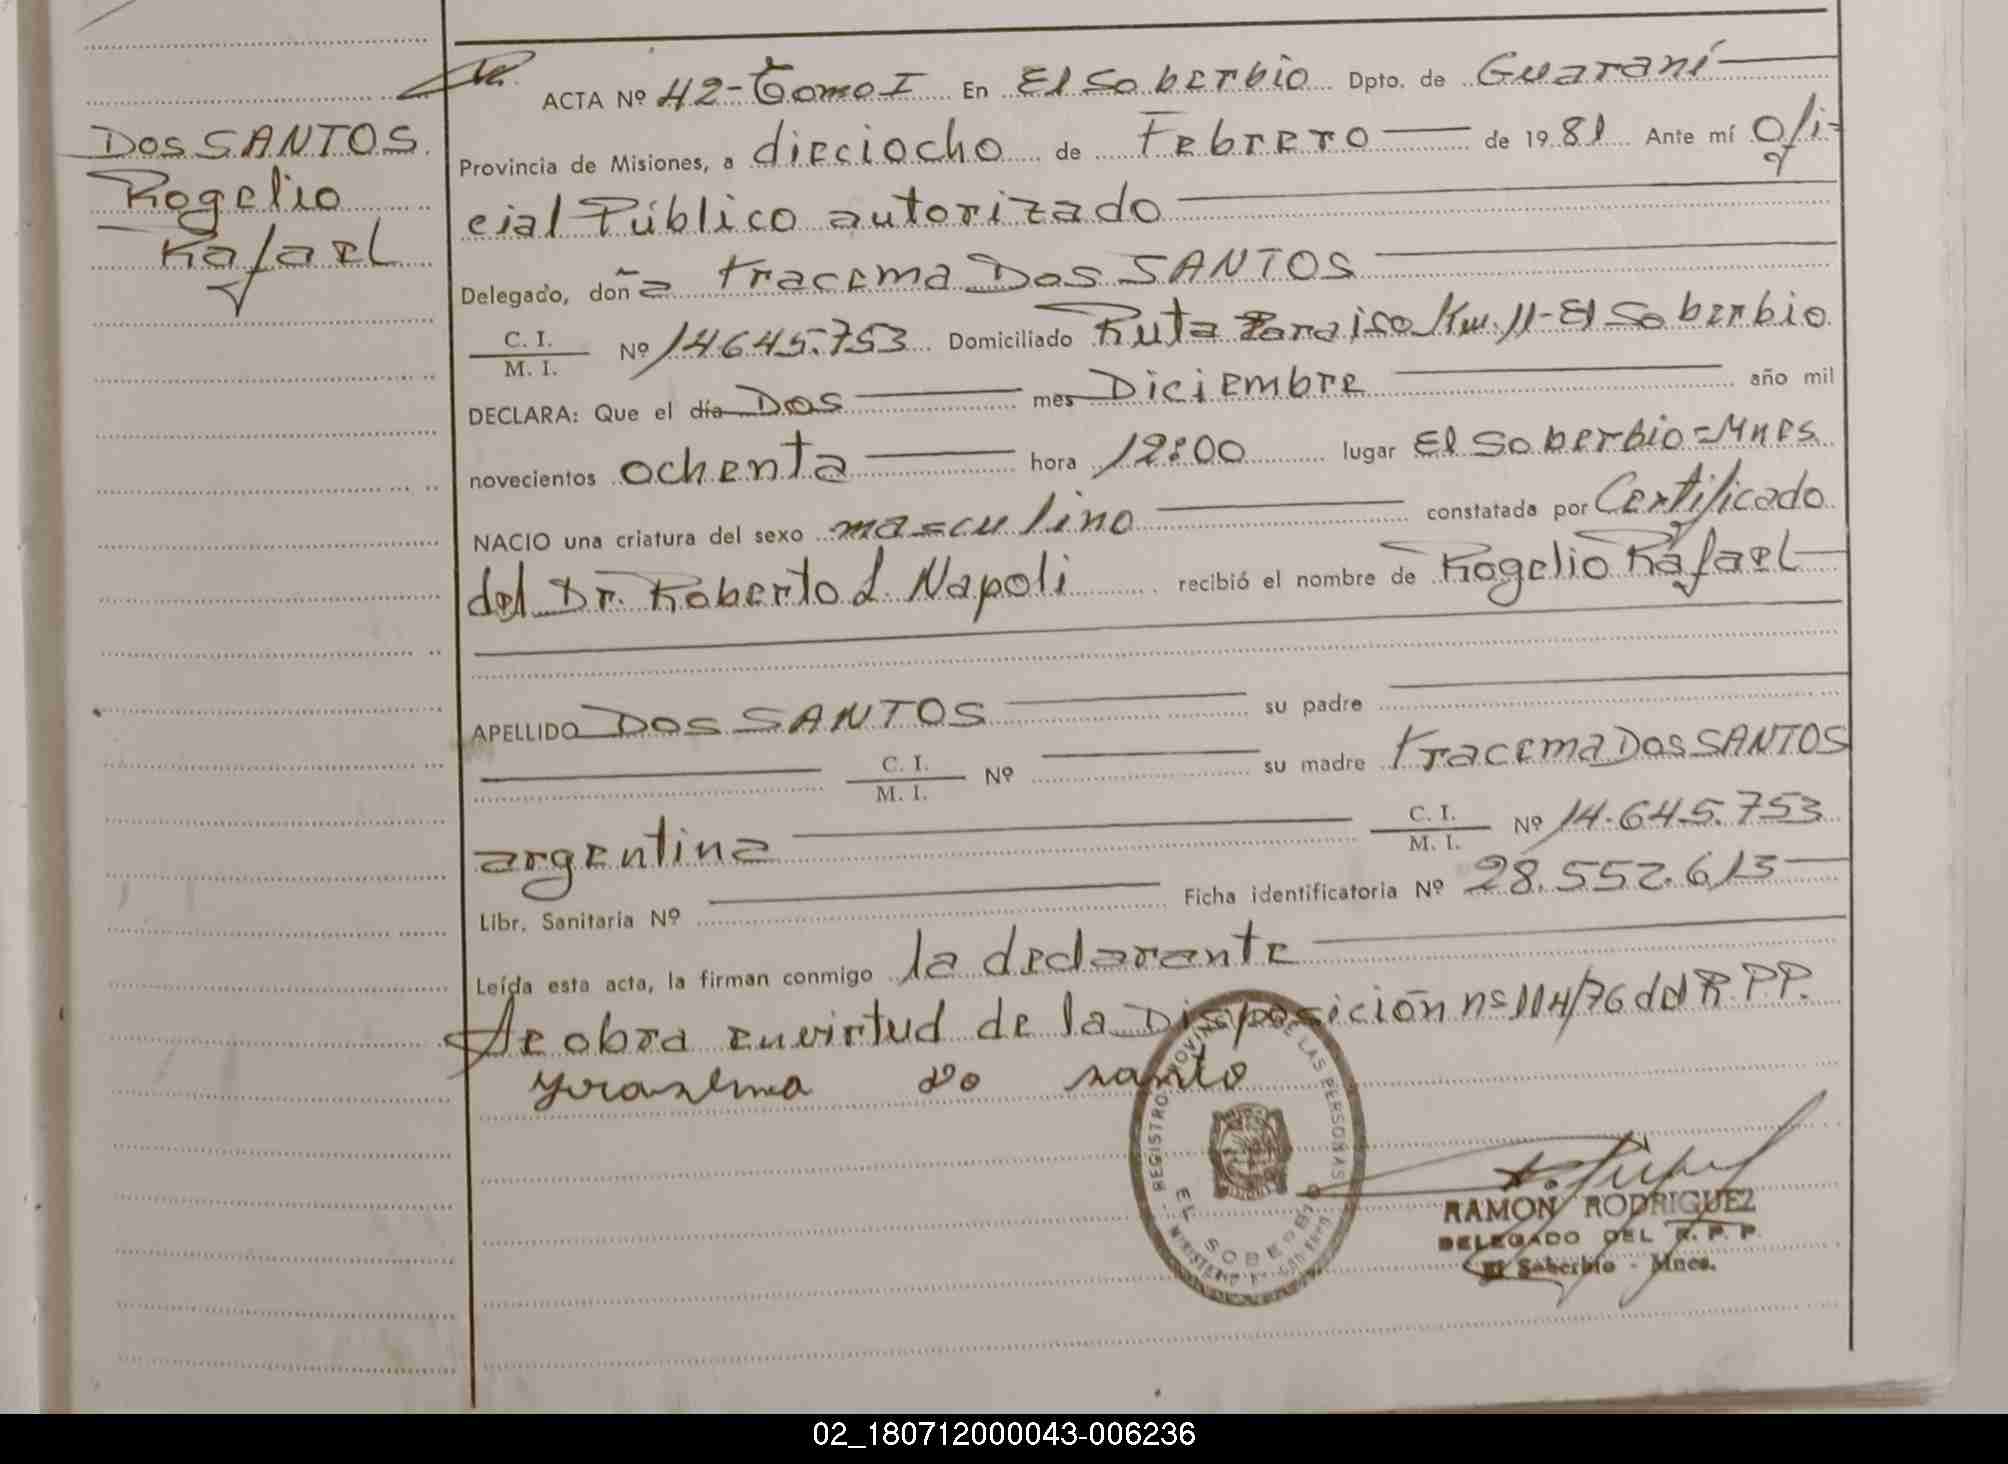 DOS SANTOS
Rogelio
Rafael
ACTA Nº 42-Tomo I En El Soberbio Dpto. de Guaraní
Provincia de Misiones, a dieciocho de Febrero de 1981 Ante mí Ofi-
cial Público autorizado
Delegado, doña Iracema DOS SANTOS
C. I. / M. I. Nº 14645.753 Domiciliado Ruta Paraiso Km. 11-El Soberbio
DECLARA: Que el día DOS mes Diciembre año mil
novecientos ochenta hora 12:00 lugar El Soberbio=Mnes
NACIO una criatura del sexo masculino constatada por Certificado
del Dr. Roberto L. Napoli recibió el nombre de Rogelio Rafael
APELLIDO DOS SANTOS su padre
C. I. / M. I. Nº su madre Iracema DOS SANTOS
argentina C. I. / M. I. Nº 14.645.753
Libr. Sanitaria Nº Ficha identificatoria Nº 28.552.613
Leída esta acta, la firman conmigo la declarante
Se obra en virtud de la Disposición nº 114/76 del R.PP.
do santo
REGISTRO PROVINCIAL DE LAS PERSONAS
EL SOBERBIO
RAMON RODRIGUEZ
DELEGADO DEL R. P. P.
El Soberbio - Mnes.
02_180712000043-006236